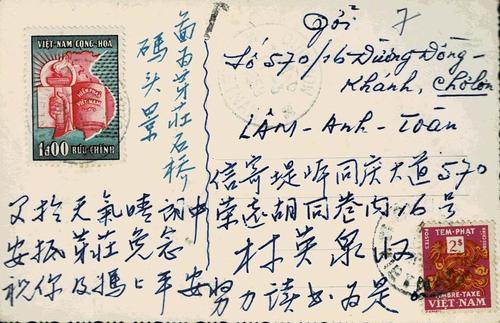 VIỆT-NAM CỘNG-HÒA
HIẾN PHÁP
VIỆT-NAM
1đ00 BƯU-CHÍNH
芽莊石橋
碼头景
Gởi 7
Số 570/16 Đường Đồng-
Khánh, Chợlớn
LÂM-Anh-Toàn
信寄堤岸同庆大道570
荣远胡同巷内16号
林英泉 收
又于天氣晴朗中
安抵芽莊免念
祝你及媽上平安
努力读书为是
TEM-PHẠT
2$
TIMBRE-TAXE
VIỆT-NAM